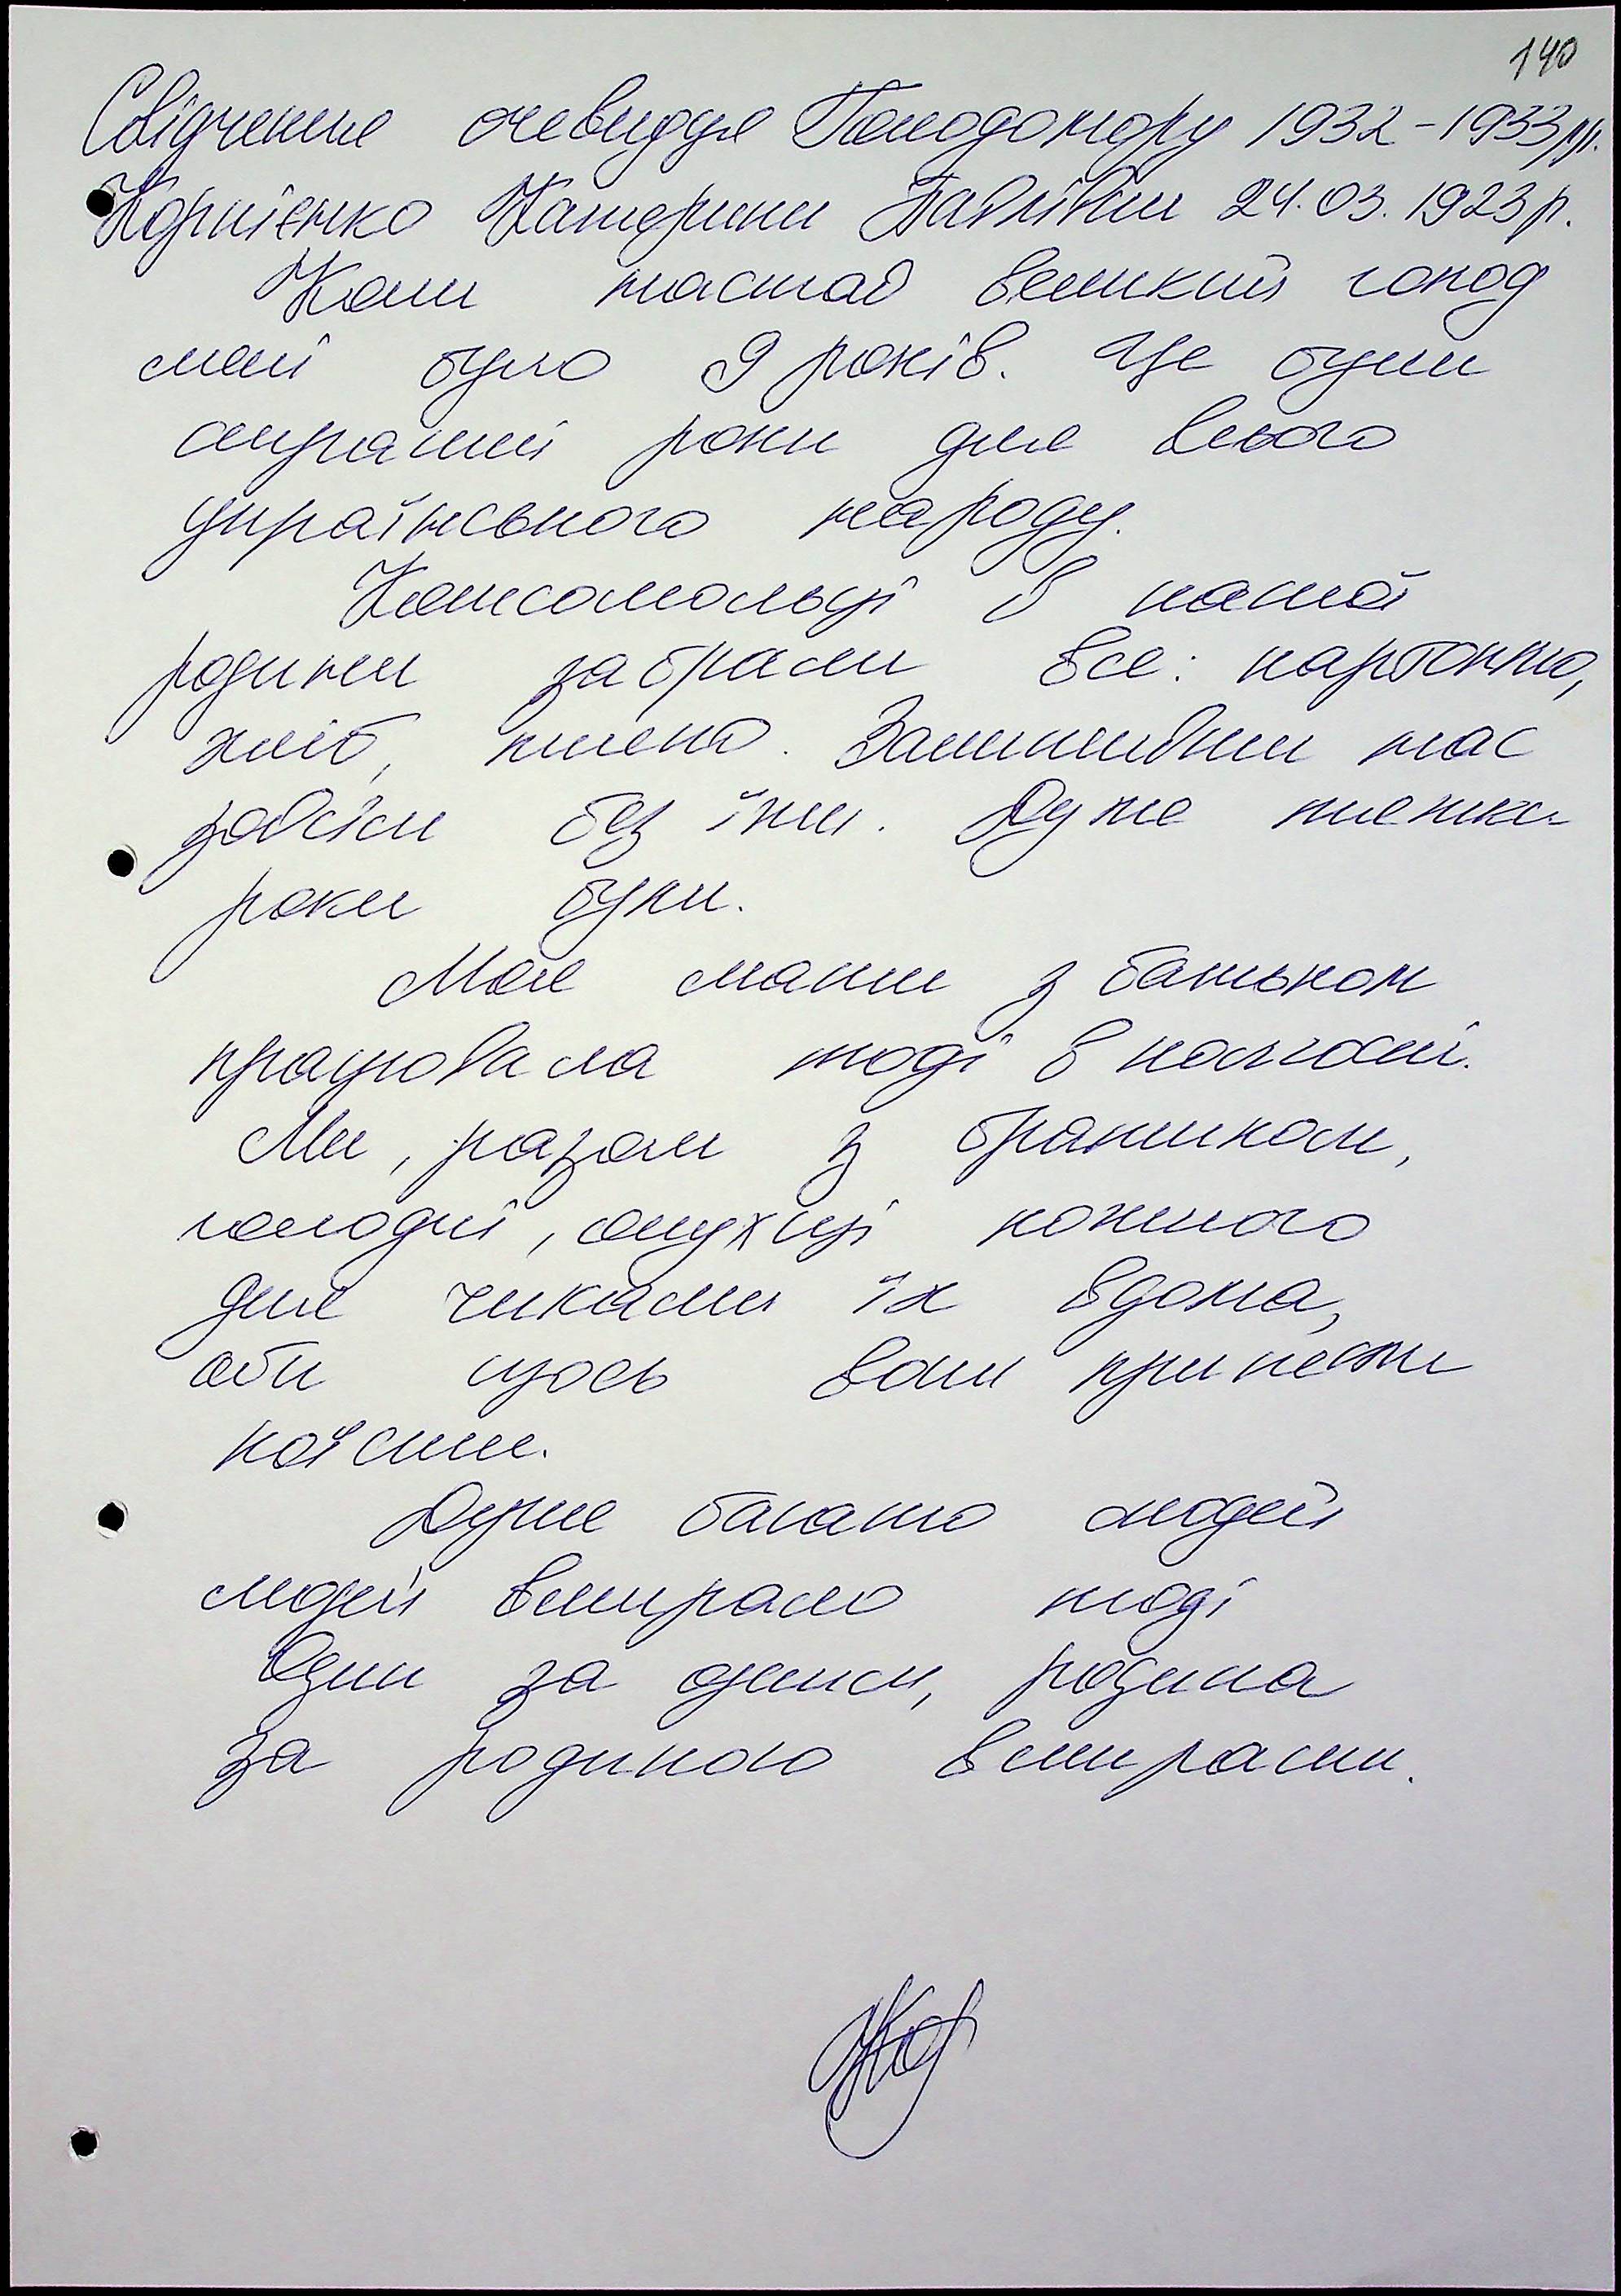 140
Свідчення очевидця Голодомору 1932-1933рр.
Корнієнко Катерини Павлівни 24.03.1923р.
Коли настав великий голод
мені було 9 років. Це були
страшні роки для всього
українського народу.
Комсомольці в нашої
родини забрали все: картоплю,
хліб, пшено. Залишивши нас
зовсім без їжи. Дуже тяжки
роки були.
Моя мати з батьком
працювала тоді в колгоспі.
Ми, разом з братиком,
голодні, опухші кожного
дня чикали їх вдома,
аби щось вони принесли
поїсти.
Дуже багато людей
людей вмирало тоді
Один за одним, родина
за родиною вмирали.